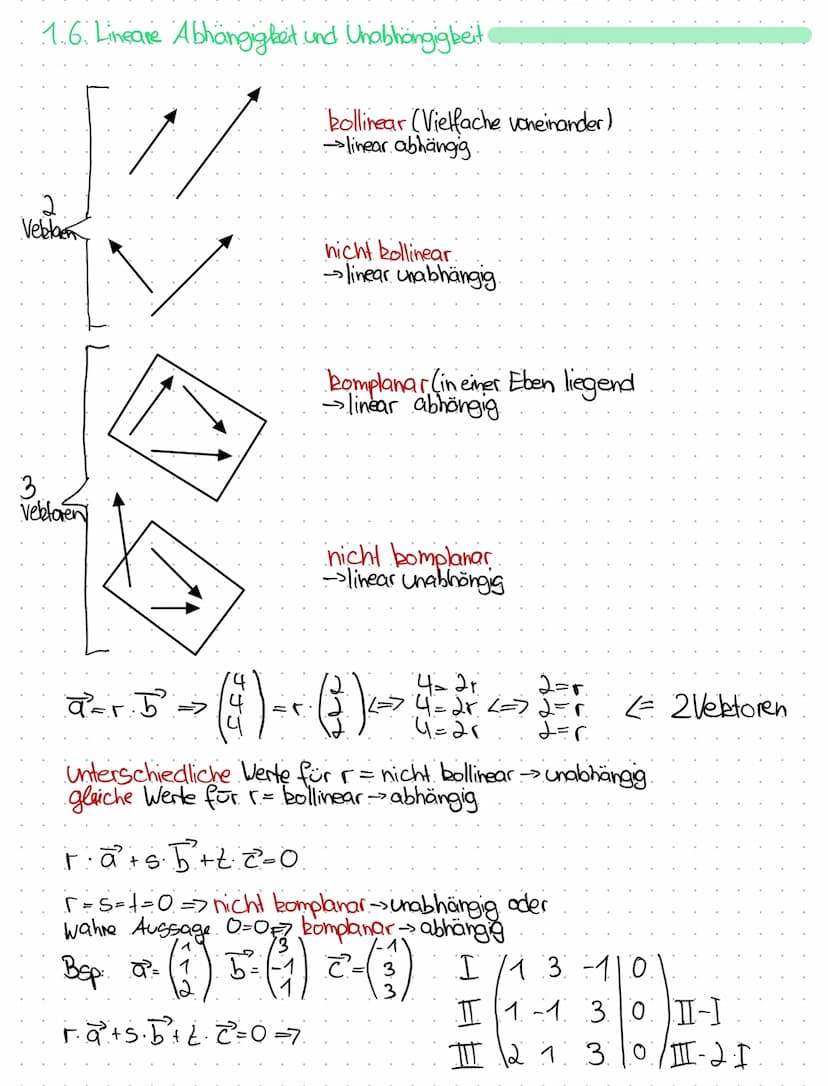 1.6. Lineare Abhängigkeit und Unabhängigkeit
kollinear (Vielfache voneinander)
→ linear abhängig
2
Vektoren
nicht kollinear
→ linear unabhängig
komplanar (in einer Eben liegend
→ linear abhängig
3
Vektoren
nicht komplanar
→ linear unabhängig
a⃗ = r · b⃗ => (4 4 4) = r · (2 2 2) <=> 4 = 2r 4 = 2r 4 = 2r <=> 2 = r 2 = r 2 = r <= 2 Vektoren
unterschiedliche Werte für r = nicht kollinear → unabhängig
gleiche Werte für r = kollinear → abhängig
r · a⃗ + s · b⃗ + t · c⃗ = 0
r = s = t = 0 => nicht komplanar → unabhängig oder
wahre Aussage 0=0 => komplanar → abhängig
Bsp: a⃗ = (1 1 2) b⃗ = (3 -1 1) c⃗ = (-1 3 3)
r · a⃗ + s · b⃗ + t · c⃗ = 0 =>
I (1 3 -1 | 0)
II (1 -1 3 | 0) II-I
III (2 1 3 | 0) III-2·I